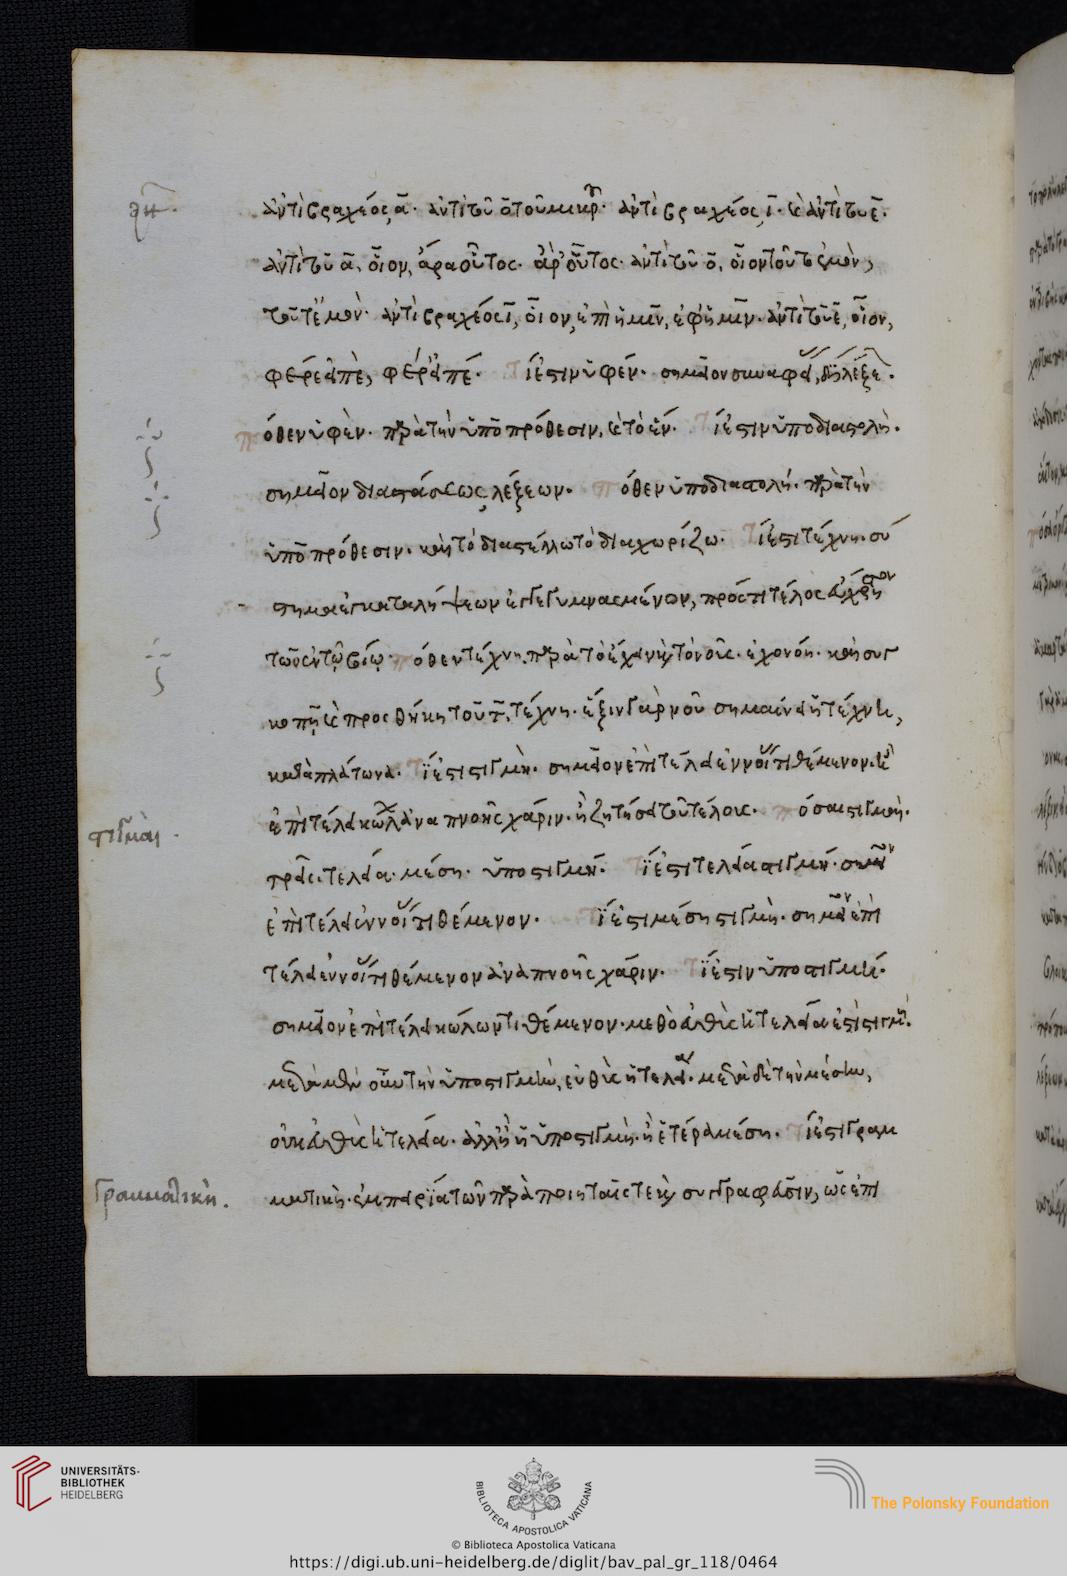 ἀντὶ βραχέος ᾱ. ἀντὶ τοῦ ο̄ τοῦ μικροῦ. ἀντὶ βραχέος ῑ. καὶ ἀντὶ τοῦ ε̄.
ἀντὶ τοῦ ᾱ, οἷον, ἄρα οὗτος. ἆρ' οὗτος. ἀντὶ τοῦ ο̄, οἷον τοῦτο ἐμὸν,
τοῦτ' ἐμὸν. ἀντὶ βραχέος ῑ, οἷον, ἐπὶ ἡμῖν, ἐφ' ἡμῖν. ἀντὶ τοῦ ε̄, οἷον,
φέρε ἀπὲ, φέρ' ἀπέ. Τί ἐστιν ὑφέν. σημεῖον συναφείας δύο λέξεων.
Πόθεν ὑφὲν. παρὰ τὴν ὑπὸ πρόθεσιν, καὶ τὸ ἕν. Τί ἐστιν ὑποδιαστολὴ.
σημεῖον διαστάσεως λέξεων. Πόθεν ὑποδιαστολή. παρὰ τὴν
ὑπὸ πρόθεσιν. καὶ τὸ διαστέλλω τὸ διαχωρίζω. Τί ἐστι τέχνη. σύ
στημα ἐκ καταλήψεων ἐγγεγυμνασμένων, πρός τι τέλος εὔχρηστον
τῶν ἐν τῷ βίῳ. Πόθεν τέχνη. παρὰ τὸ ἔχειν
κοπῇ καὶ προσθήκῃ τοῦ τ̄, τέχνη. ἕξιν γὰρ νοῦ σημαίνει ἡ τέχνη,
κατὰ πλάτωνα. Τί ἐστι στιγμὴ. σημεῖον ἐπὶ τέλει ἐννοίας τιθέμενον. καὶ
ἐπὶ τέλει κώλων ἀναπνοῆς χάριν. ἢ ζητήσει τοῦ τέλους. Πόσαι στιγμαὶ.
στιγμαὶ.
τρεῖς. τελεία. μέση. ὑποστιγμή. Τί ἐστι τελεία στιγμή. σημεῖον
ἐπὶ τέλει ἐννοίας τιθέμενον. Τί ἐστι μέση στιγμὴ. σημεῖον ἐπὶ
τέλει ἐννοίας τιθέμενον ἀναπνοῆς χάριν. Τί ἐστιν ὑποστιγμή.
σημεῖον ἐπὶ τέλει κώλων τιθέμενον. μεθ' ὃ εὐθὺς ἡ τελεία ἐστὶ στιγμή.
μετὰ μὲν οὖν τὴν ὑποστιγμὴν, εὐθὺς ἡ τελεία. μετὰ δὲ τὴν μέσην,
οὐκ εὐθὺς ἡ τελεία. ἀλλ' ἢ ἡ ὑποστιγμὴ. ἢ ἑτέρα μέση. Τί ἐστι γραμ
ματικὴ. ἐμπειρία τῶν παρὰ ποιηταῖς τε καὶ συγγραφεῦσιν, ὡς ἐπὶ
γραμματικὴ.
UNIVERSITÄTS-
BIBLIOTHEK
HEIDELBERG
BIBLIOTECA APOSTOLICA VATICANA
The Polonsky Foundation
© Biblioteca Apostolica Vaticana
https://digi.ub.uni-heidelberg.de/diglit/bav_pal_gr_118/0464